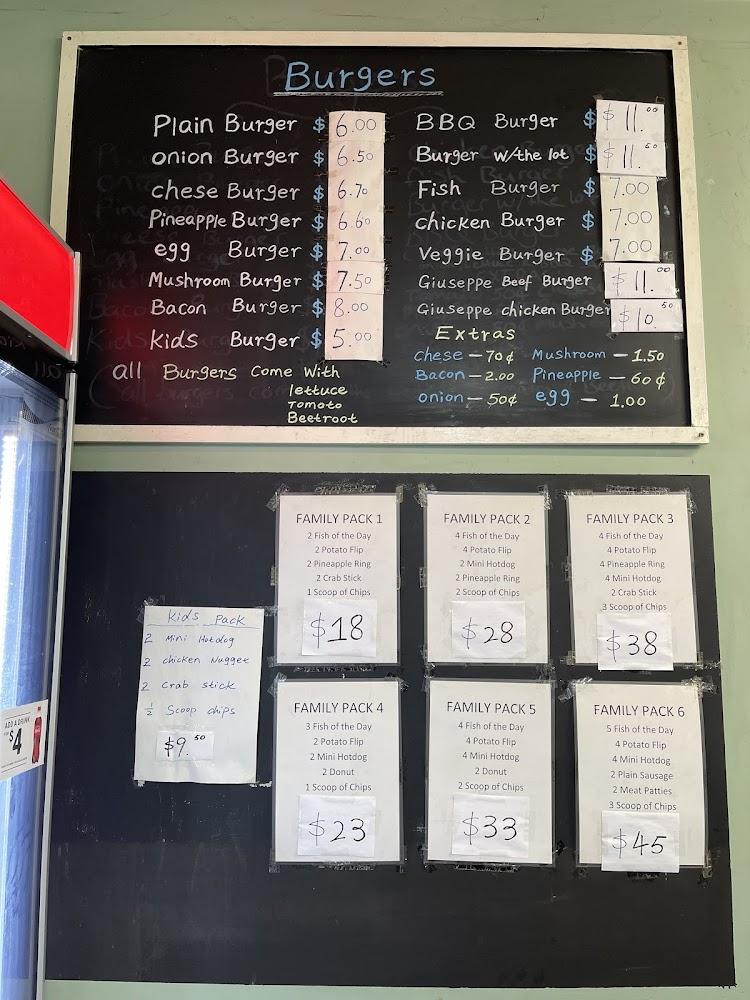 Burgers
Plain Burger $ 6.00
onion Burger $ 6.50
chese Burger $ 6.70
Pineapple Burger $ 6.60
egg Burger $ 7.00
Mushroom Burger $ 7.50
Bacon Burger $ 8.00
Kids Burger $ 5.00
all Burgers come with
lettuce
Tomoto
Beetroot
BBQ Burger $ $11.00
Burger w/the lot $ $11.50
Fish Burger $ 7.00
chicken Burger $ 7.00
Veggie Burger $ 7.00
Giuseppe Beef Burger $11.00
Giuseppe chicken Burger $10.50
Extras
chese - 70¢ Mushroom - 1.50
Bacon - 2.00 Pineapple - 60¢
onion - 50¢ egg - 1.00
FAMILY PACK 1
2 Fish of the Day
2 Potato Flip
2 Pineapple Ring
2 Crab Stick
1 Scoop of Chips
$18
FAMILY PACK 2
4 Fish of the Day
4 Potato Flip
2 Mini Hotdog
2 Pineapple Ring
2 Scoop of Chips
$28
FAMILY PACK 3
4 Fish of the Day
4 Potato Flip
4 Pineapple Ring
4 Mini Hotdog
2 Crab Stick
3 Scoop of Chips
$38
Kids Pack
2 Mini Hotdog
2 chicken Nugget
2 Crab stick
½ Scoop chips
$9.50
FAMILY PACK 4
3 Fish of the Day
2 Potato Flip
2 Mini Hotdog
2 Donut
1 Scoop of Chips
$23
FAMILY PACK 5
4 Fish of the Day
4 Potato Flip
4 Mini Hotdog
2 Donut
2 Scoop of Chips
$33
FAMILY PACK 6
5 Fish of the Day
4 Potato Flip
4 Mini Hotdog
2 Plain Sausage
2 Meat Patties
3 Scoop of Chips
$45
ADD A DRINK
$4